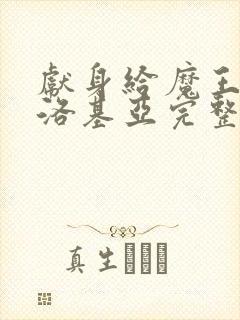 獻身給魔王
洛基亞完整
真生